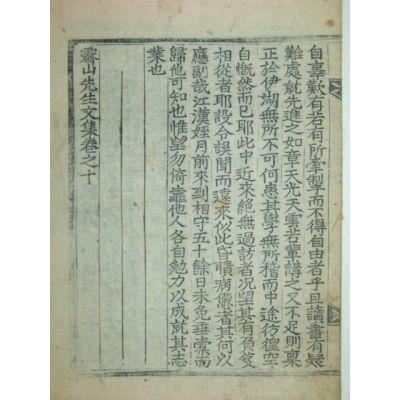 自辜歎有若有所牽掣而不得自由者乎且讀書有疑
難處就先進之如章天光天雲若輩講之又不足則稟
正於伊湖無所不可何患其學無所稽而中途彷徨空
自慨然而已耶此中近來絶無過訪者况望其有負笈
相從者耶設令誤聞而遠來似此昏聵病憊者其何以
應副哉江漢姪月前來到相守五十餘日未免垂槖而
歸他可知也惟望勿倚靠他人各自勉力以成就其志
業也
霽山先生文集卷之十